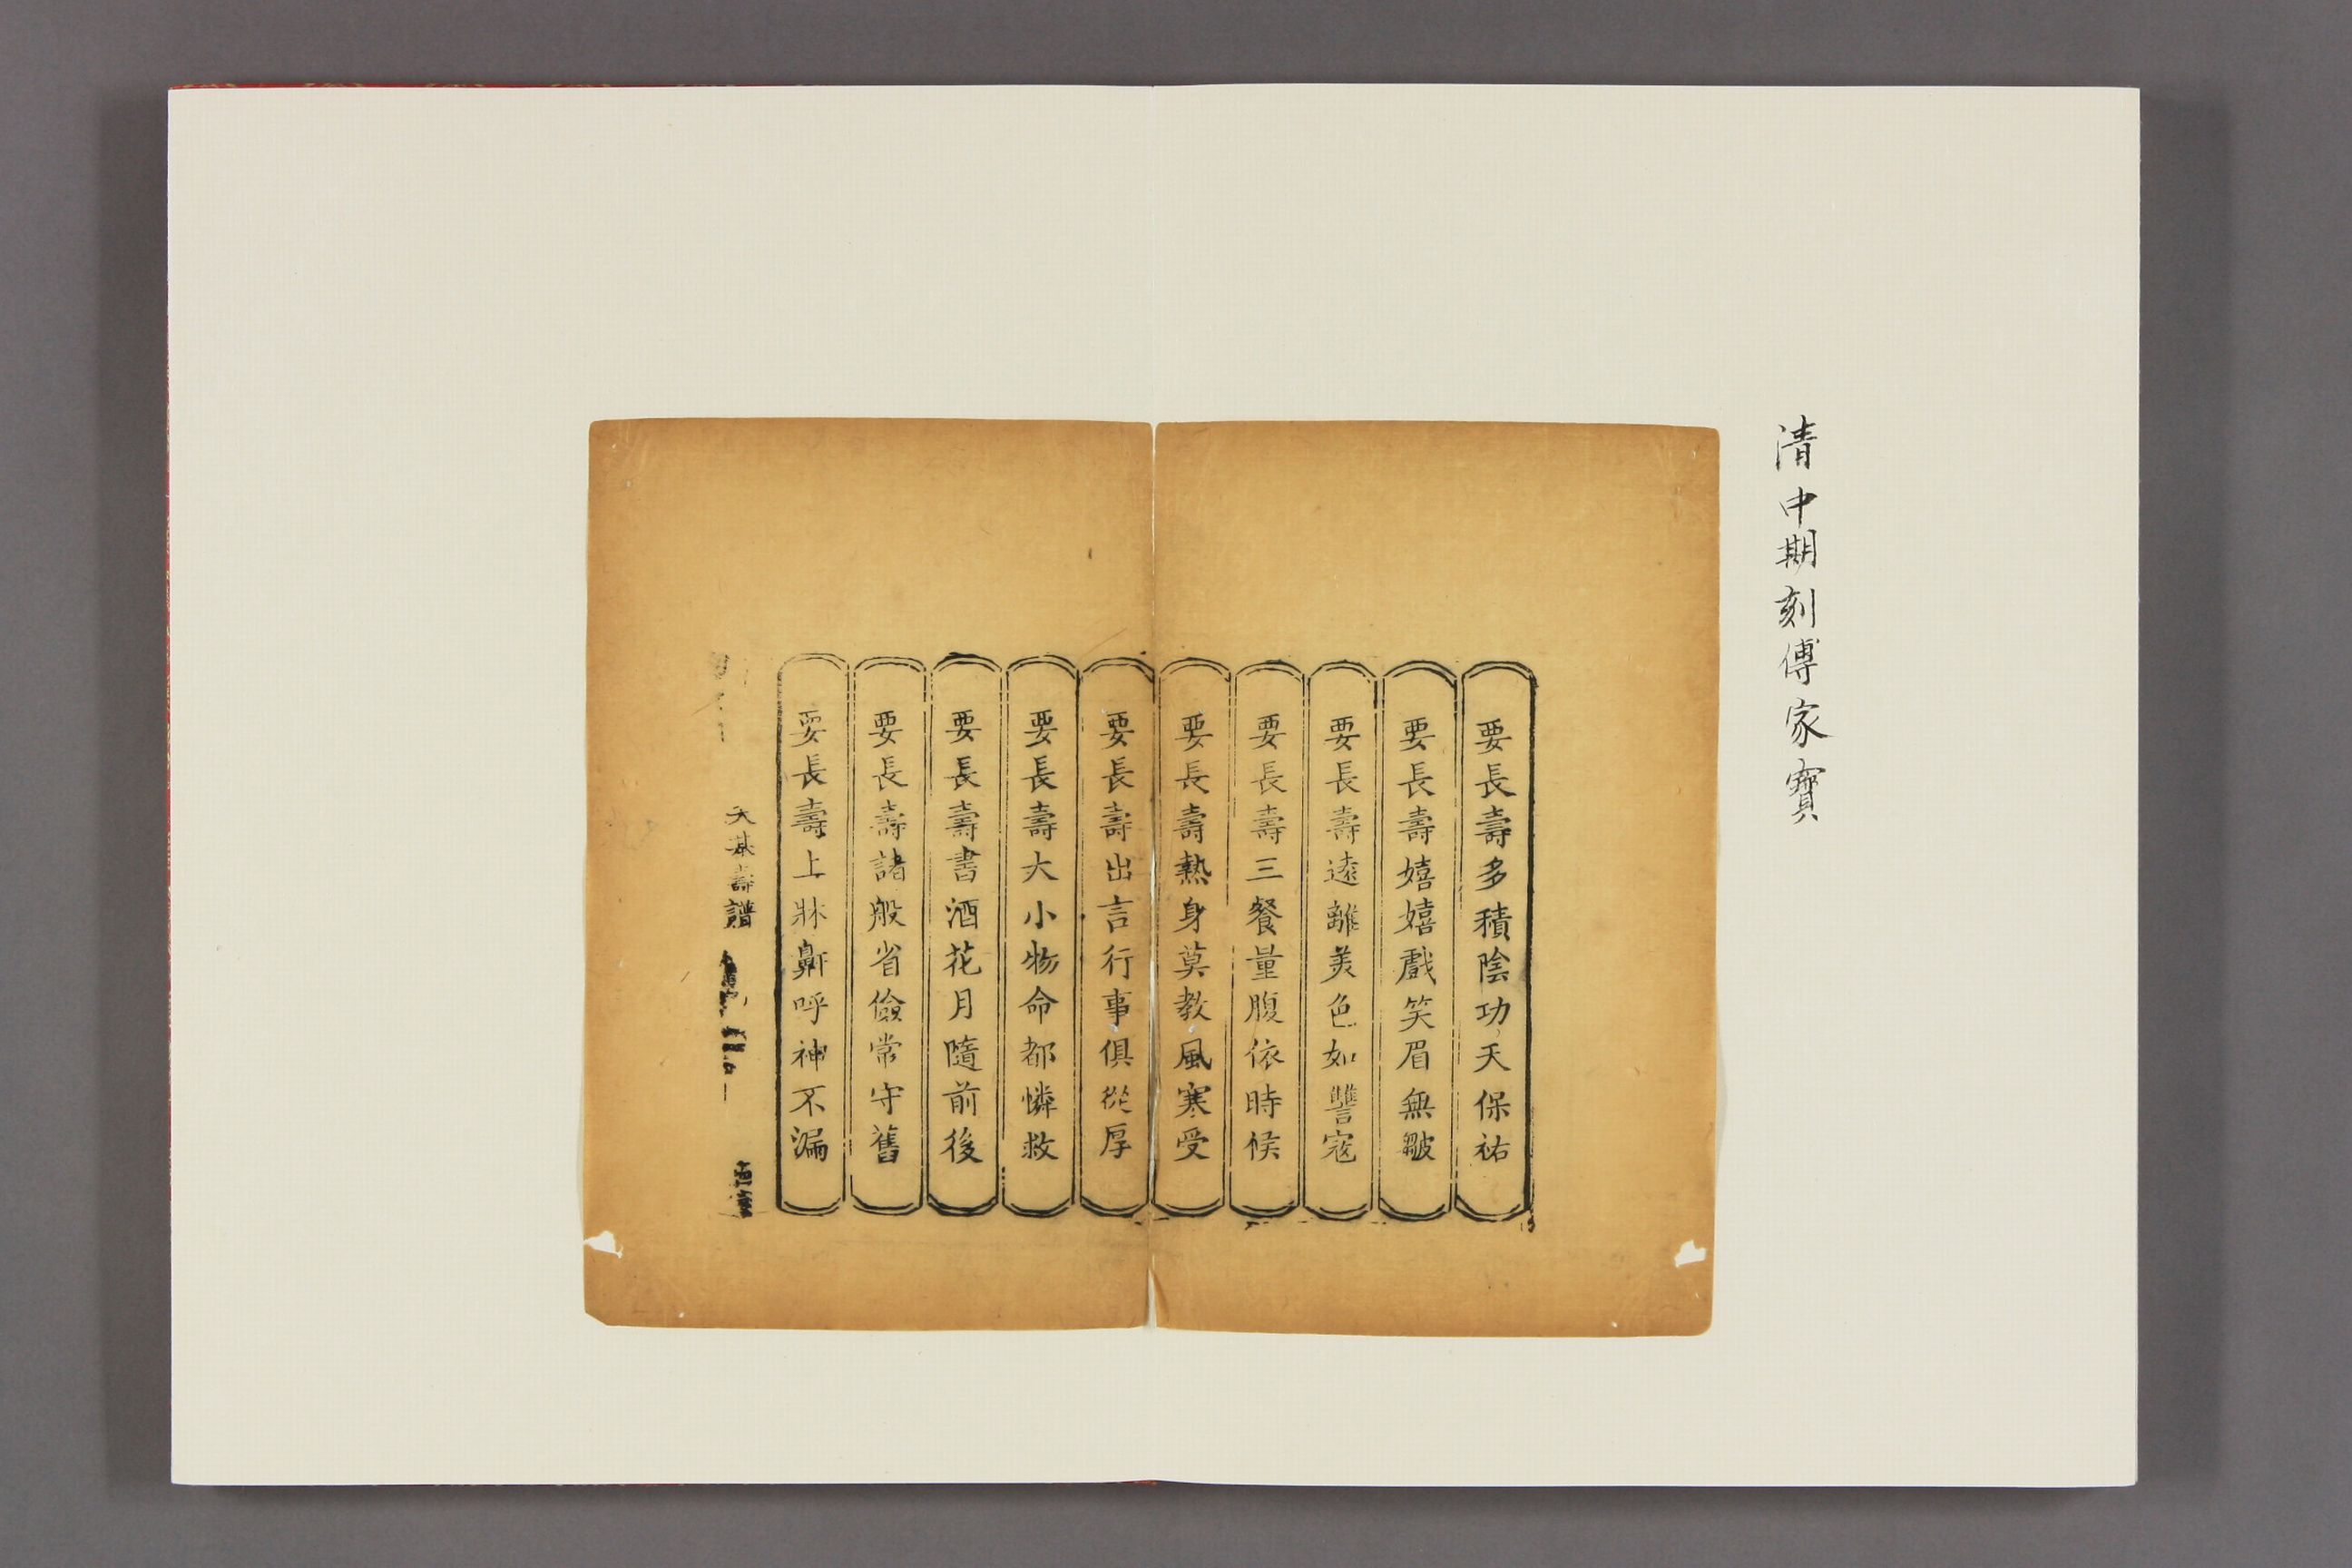 清中期刻傳家寶
要長壽多積陰功天保祐
要長壽嬉嬉戲笑眉無皺
要長壽遠離美色如讐寇
要長壽三餐量腹依時候
要長壽熱身莫教風寒受
要長壽出言行事俱從厚
要長壽大小物命都憐救
要長壽書酒花月隨前後
要長壽諸般省儉常守舊
要長壽上牀鼾呼神不漏
天基壽譜